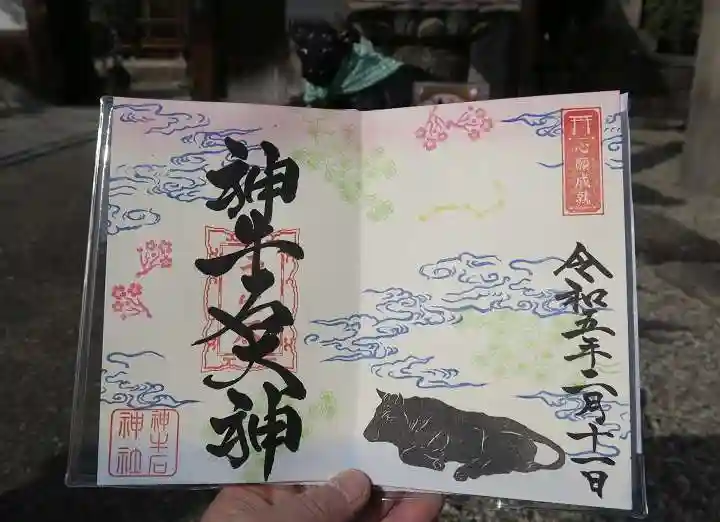 心願成就
令和五年二月十一日
神牛石天神
神牛石
神社